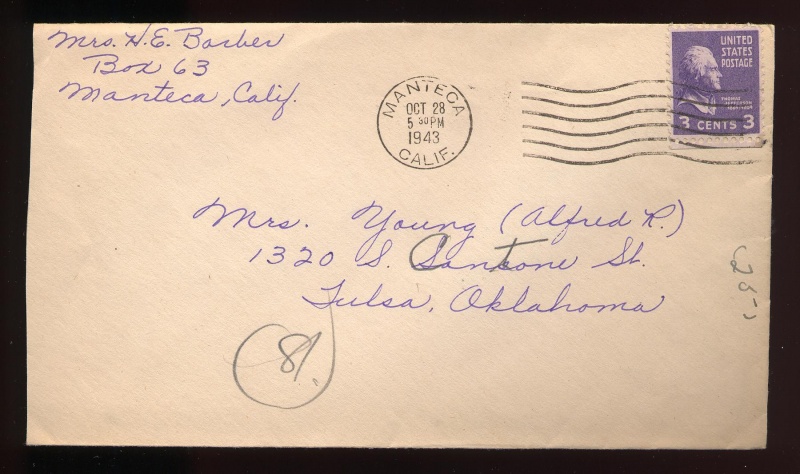 Mrs. H. E. Barber
Box 63
Manteca, Calif.
MANTECA
OCT 28
5 30 PM
1943
CALIF.
UNITED
STATES
POSTAGE
THOMAS
JEFFERSON
3 CENTS 3
Mrs. Young (Alfred R.)
1320 S. St.
Tulsa, Oklahoma
81.